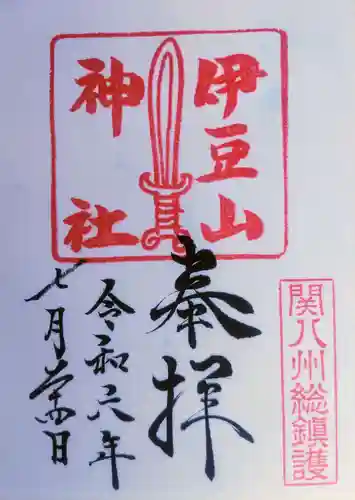 伊豆山
神社
関八州総鎮護
奉拝
令和六年
七月日